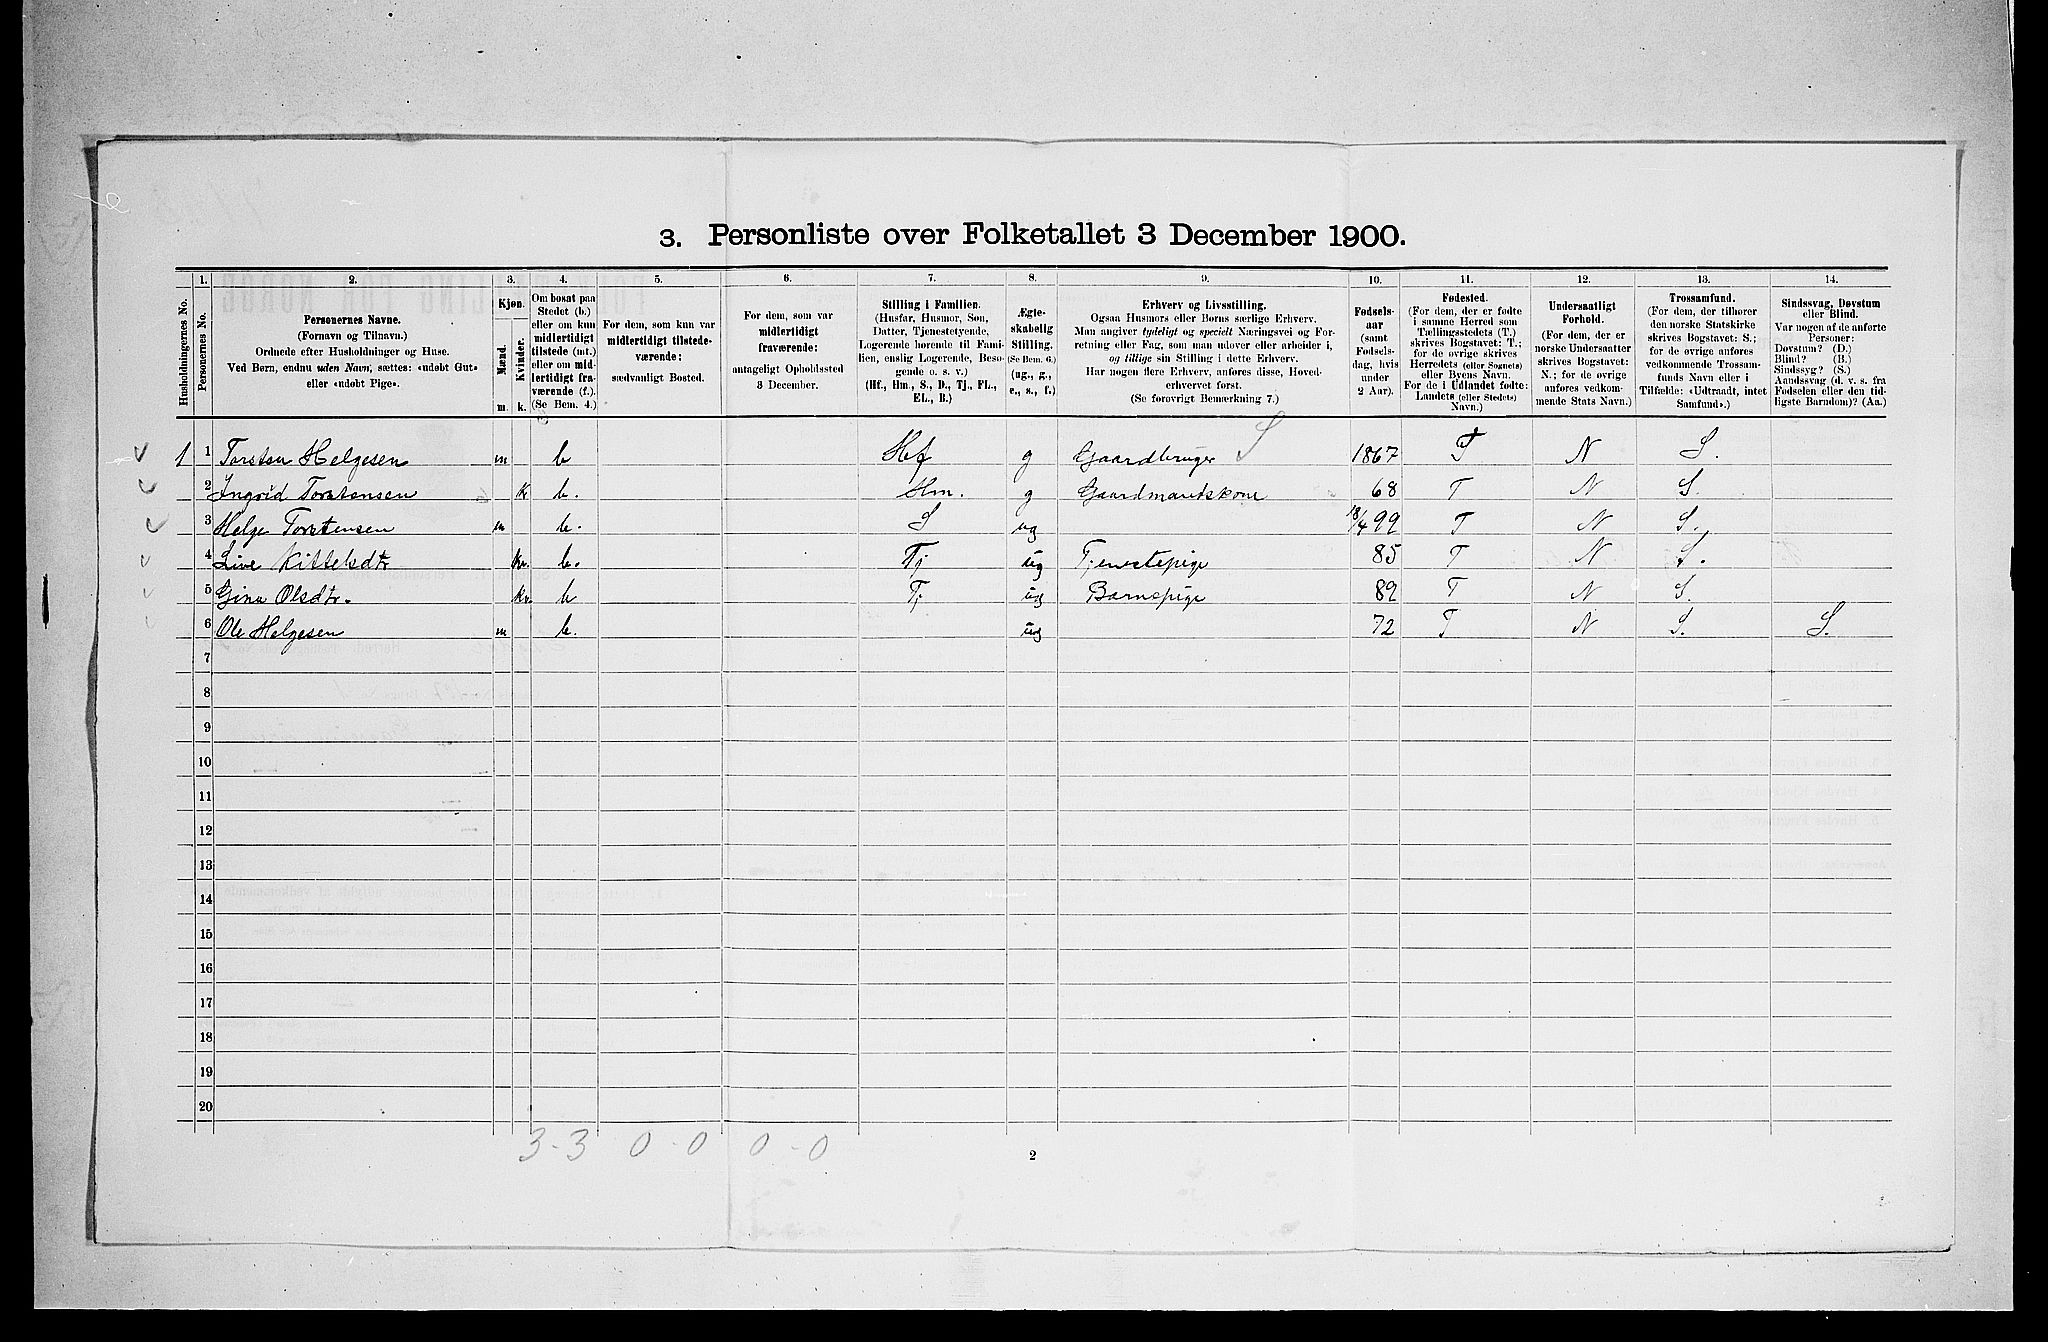 3. Personliste over Folketallet 3 December 1900.
1. 2. 3. 4. 5. 6. 7. 8. 9. 10. 11. 12. 13. 14.
Husholdningernes No.
Personernes No.
Personernes Navne.
(Fornavn og Tilnavn.)
Ordnede efter Husholdninger og Huse.
Ved Børn, endnu uden Navn, sættes: «udøbt Gut»
eller «udøbt Pige».
Kjøn.
Mænd.
Kvinder.
m. k.
Om bosat paa
Stedet (b.)
eller om kun
midlertidigt
tilstede (mt.)
eller om mid-
lertidigt fra-
værende (f.).
(Se Bem. 4.)
For dem, som kun var
midlertidigt tilstede-
værende:
sædvanligt Bosted.
For dem, som var
midlertidigt
fraværende:
antageligt Opholdssted
3 December.
Stilling i Familien.
(Husfar, Husmor, Søn,
Datter, Tjenestetyende,
Logerende hørende til Fami-
lien, enslig Logerende, Besø-
gende o. s. v.)
(Hf., Hm., S., D., Tj., FL.,
EL., B.)
Ægte-
skabelig
Stilling.
(Se Bem. 6.)
(ug., g.,
e., s., f.)
Erhverv og Livsstilling.
Ogsaa Husmors eller Børns særlige Erhverv.
Man angiver tydeligt og specielt Næringsvei og For-
retning eller Fag, som man udøver eller arbeider i,
og tillige sin Stilling i dette Erhverv.
Har nogen flere Erhverv, anføres disse, Hoved-
erhvervet først.
(Se forøvrigt Bemærkning 7.)
Fødsels-
aar
(samt
Fødsels-
dag, hvis
under
2 Aar).
Fødested.
(For dem, der er fødte
i samme Herred som
Tællingsstedets (T.)
skrives Bogstavet: T.;
for de øvrige skrives
Herredets (eller Sognets)
eller Byens Navn.
For de i Udlandet fødte:
Landets (eller Stedets)
Navn.)
Undersaatligt
Forhold.
(For dem, der er
norske Undersaatter
skrives Bogstavet:
N.; for de øvrige
anføres vedkom-
mende Stats Navn.)
Trossamfund.
(For dem, der tilhører
den norske Statskirke
skrives Bogstavet: S.;
for de øvrige anføres
vedkommende Trossam-
funds Navn eller i
Tilfælde: «Udtraadt, intet
Samfund».)
Sindssvag, Døvstum
eller Blind.
Var nogen af de anførte
Personer:
Døvstum? (D.)
Blind? (B.)
Sindssyg? (S.)
Aandssvag (d. v. s. fra
Fødselen eller den tid-
ligste Barndom)? (Aa.)
1 1 Torsten Helgesen m b Hf g Gaardbruger S 1867 T N S.
2 Ingrid Torstensen k b. Hm. g Gaardmandskone 68 T N S.
3 Helge Torstensen m b. S ug 18/4 99 T N S.
4 Live Kittelsdtr kv. b. Tj ug Tjenestepige 85 T N S.
5 Gina Olsdtr. kv. b Tj ug Barnepige 82 T N S.
6 Ole Helgesen m b. ug 72 T N S. S.
7
8
9
10
11
12
13
14
15
16
17
18
19
20
3-3 0-0 0-0
2